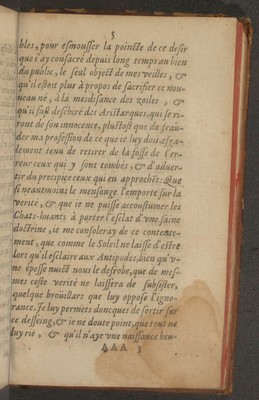 5
bles, pour esmousser la pointe de ce desir
que i'ay consacré depuis long temps au bien
du public, le seul object de mes veilles, &
qu'il estoit plus à propos de sacrifier ce nou-
ueau né, à la mesdisance des zoiles, &
qu'il fust deschiré des Aristarques, qui se ri-
ront de son innocence, plustost que de frau-
der ma profession de ce que ie luy dois, esga-
lement tenu de retirer de la fosse de l'er-
reur ceux qui y sont tombés, & d'aduer-
tir du precipice ceux qui en approchẽt. Que
si neantmoins le mensonge l'emporte sur la
verité, & que ie ne puisse accoustumer les
Chats-huants à porter l'esclat d'vne saine
doctrine, ie me consoleray de ce contente-
ment, que comme le Soleil ne laisse d'estre
lors qu'il esclaire aux Antipodes, bien qu'v-
ne epesse nuict nous le desrobe, que de mes-
mes ceste verité ne laissera de subsister,
quelque broüillars que luy oppose l'igno-
rance. Je luy permets doncques de sortir sur
ce desseing, & ie ne doute point, que tout ne
luy rië, & qu'il n'aye vne naissance heu-
AAA 3